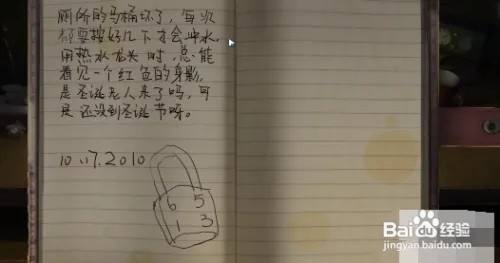 厕所的马桶坏了，每次
都要按好几下才会冲水。
用热水龙头时，总能
看见一个红色的身影。
是圣诞老人来了吗，可
是还没到圣诞节呀。
10.17.2010
6 5
1 3
Baidu经验
jingyan.baidu.com